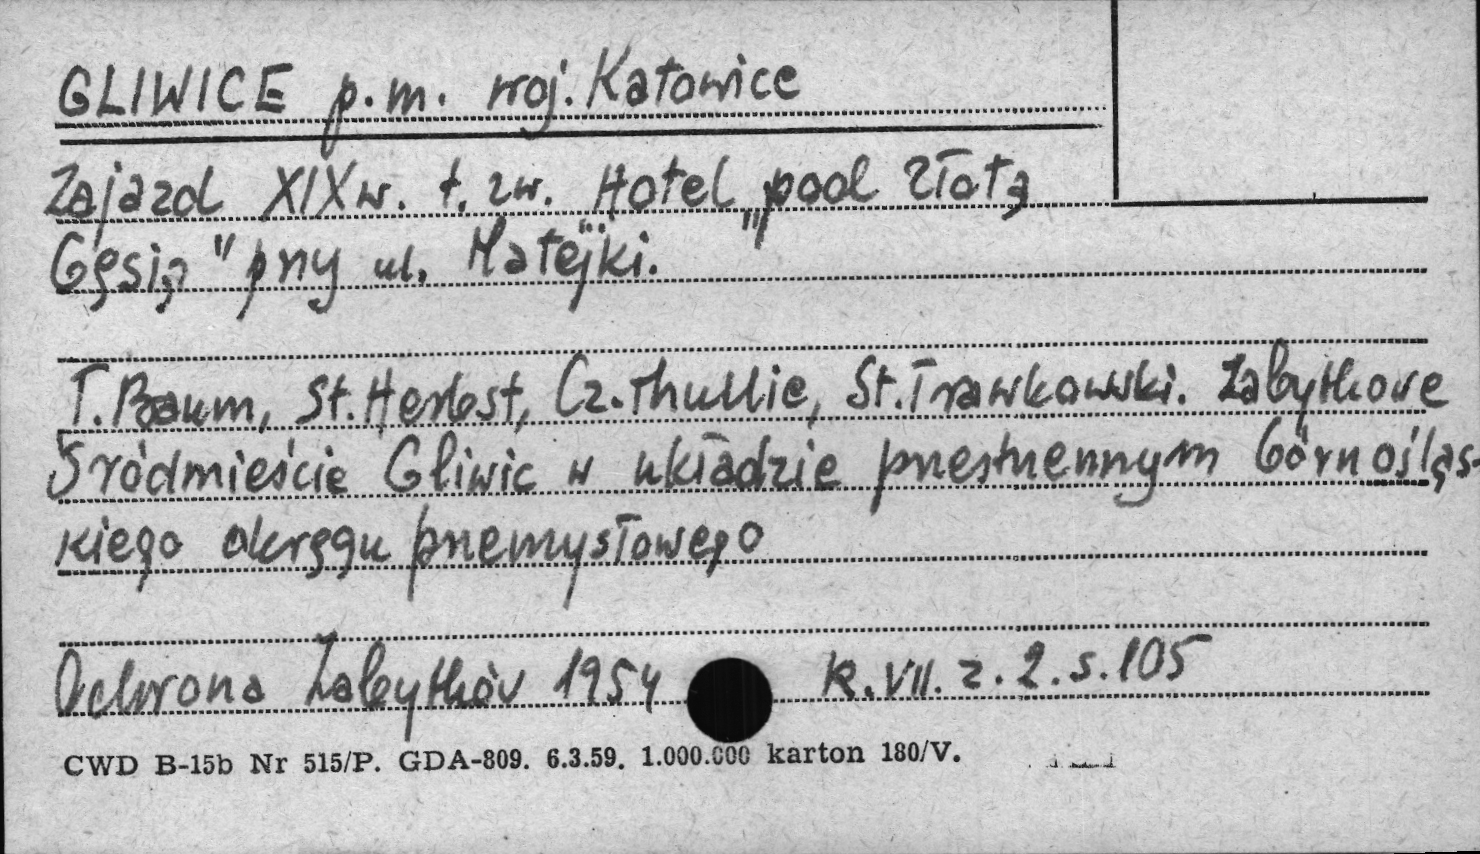 GLIWICE p.m. woj. Katowice
Zajazd XIX w. t. zw. Hotel „pod Złotą
Gęsią" przy ul. Matejki.
T. Baum, St. Herbst, Cz. Thullie, St. Trawkowski. Zabytkowe
Śródmieście Gliwic w układzie przestrzennym Górnośląs-
kiego okręgu przemysłowego
Ochrona Zabytków 1954 R. VII. z. 2. s. 105
CWD B-15b Nr 515/P. GDA-809. 6.3.59. 1.000.000 karton 180/V.